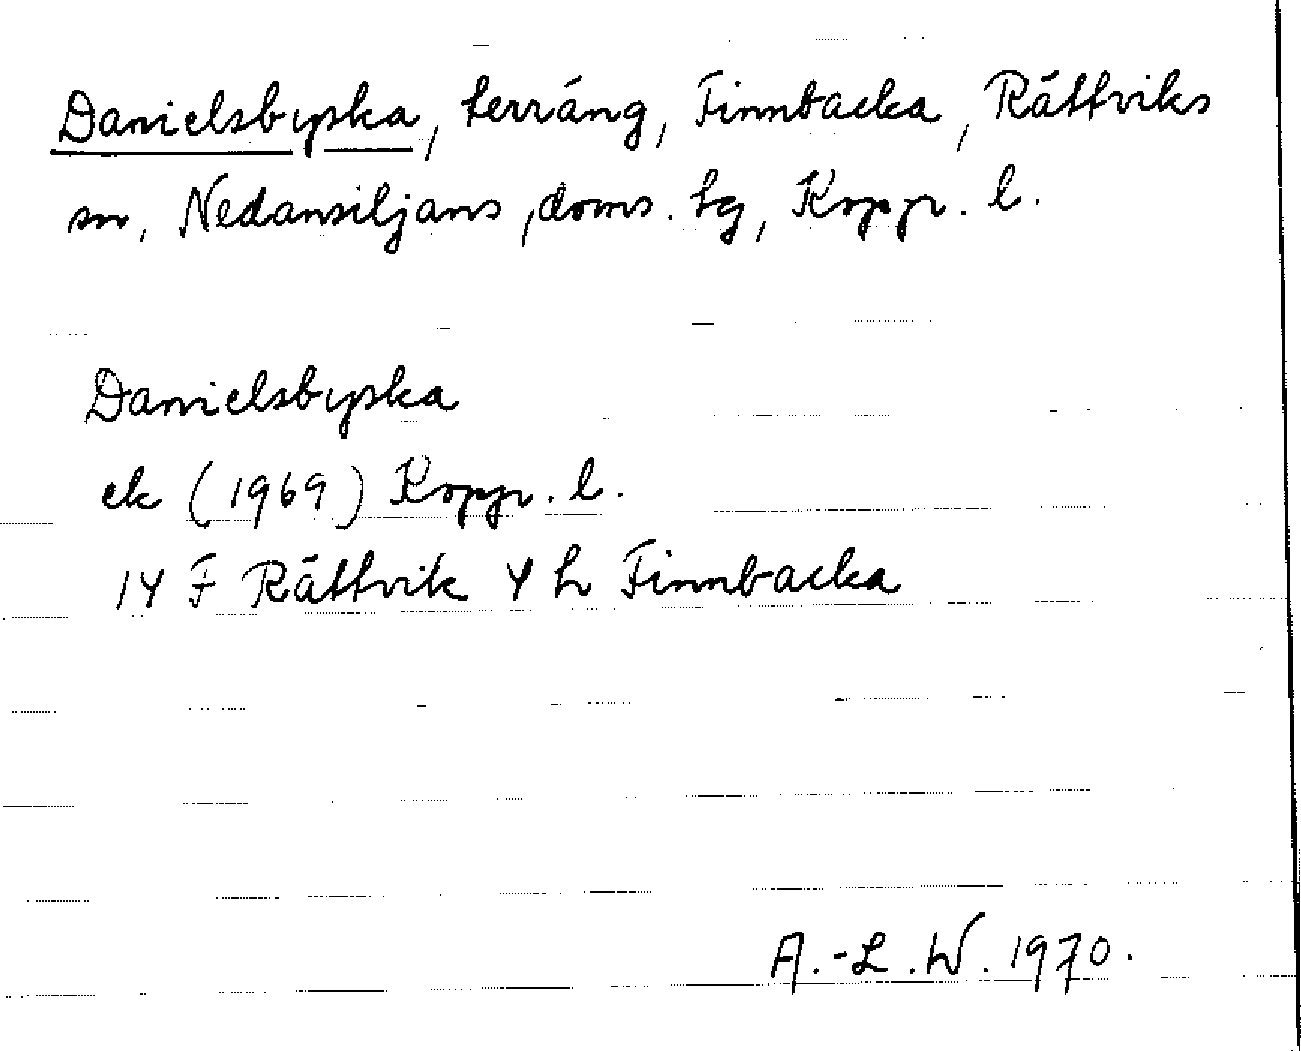 Danielsbyska, terräng, Finnbacka, Rättviks
sn, Nedansiljans, doms. tg, Koppr. l.
Danielsbyska
ek (1969) Koppr. l.
14 F Rättvik 4 h Finnbacka
A.-L.W. 1970.